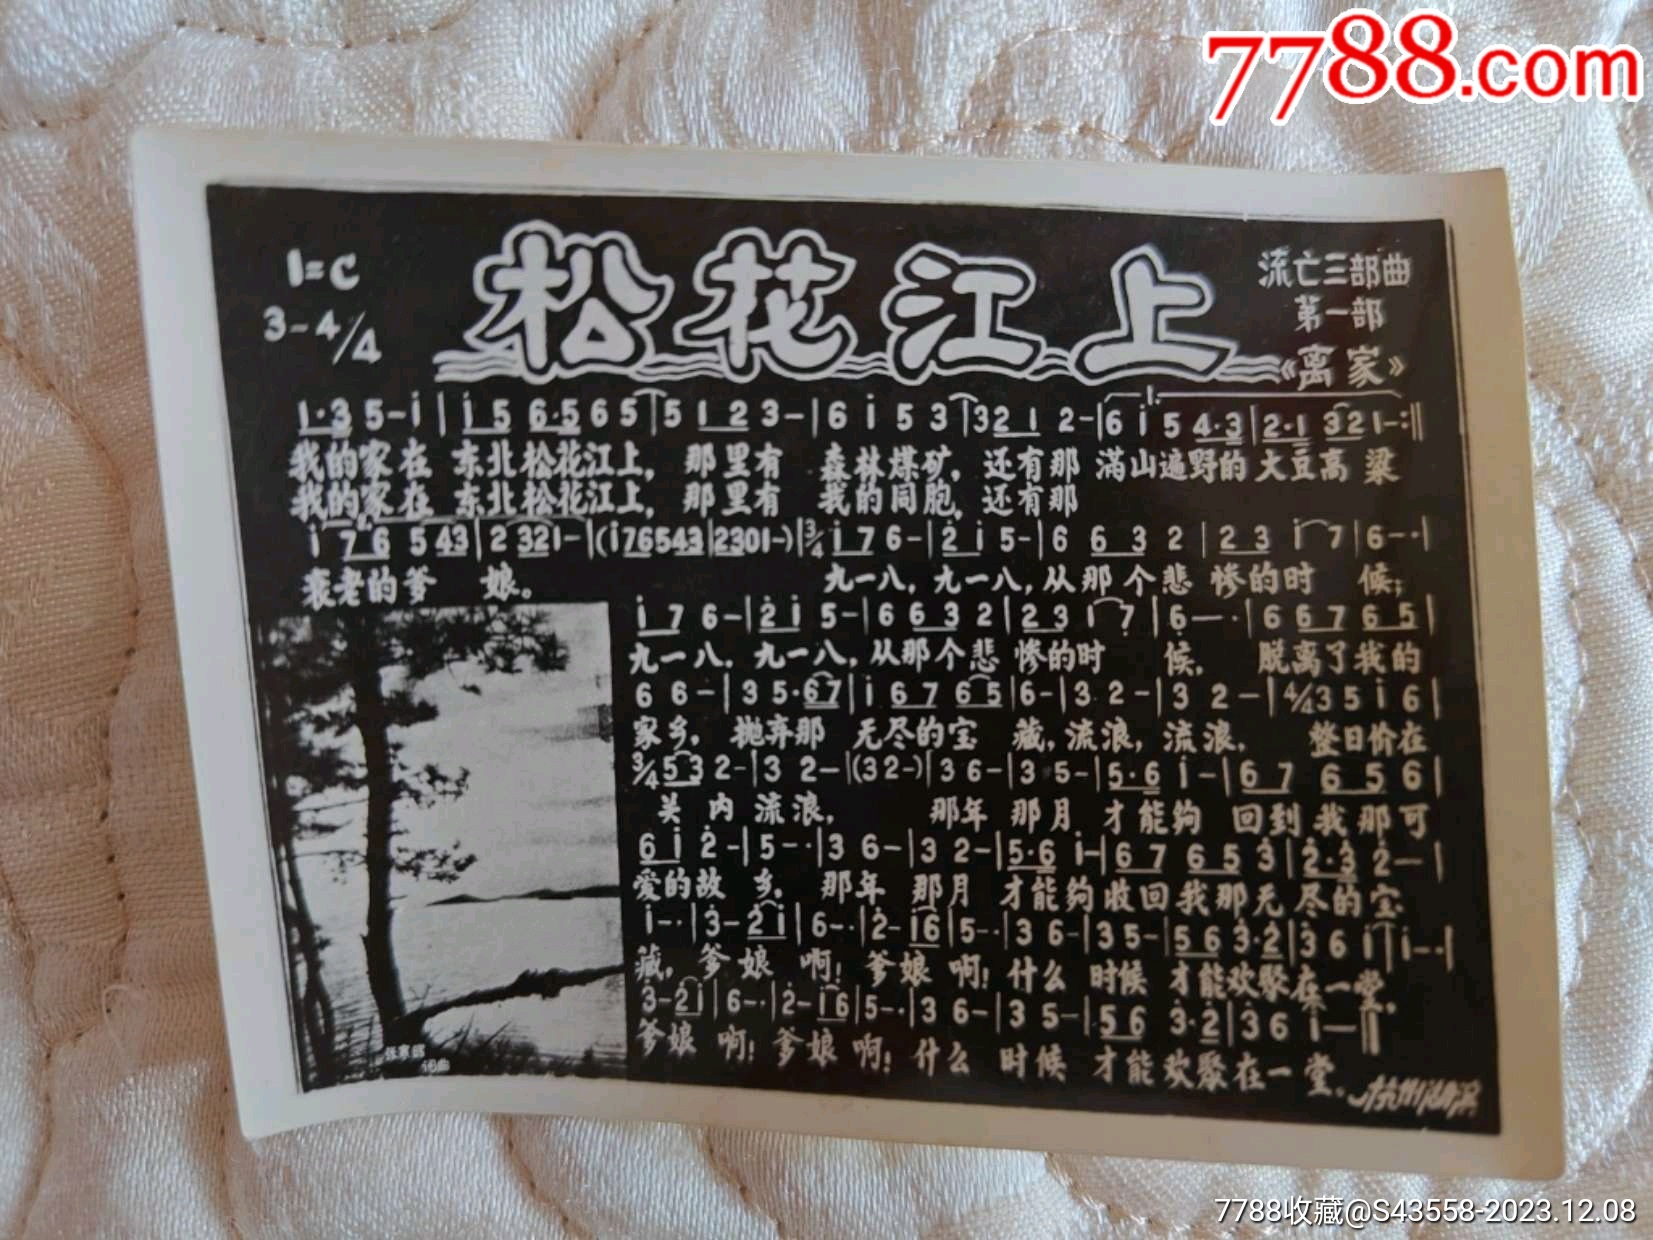 7788.com
1=C
3-4/4
松花江上
流亡三部曲
第一部
《离家》
1.
1·3 5-i | i 5 6·5 6 5 | 5 1 2 3- | 6 i 5 3 | 3 2 1 2- | 6 i 5 4·3 | 2·1 3 2 1- :||
我的家在 东北松花江上, 那里有 森林煤矿, 还有那 满山遍野的 大豆高粱
我的家在 东北松花江上, 那里有 我的同胞, 还有那
2.
i 7 6 5 43 | 2 32 1- | (i 76543 | 2301-) | 3/4 i 7 6- | 2 i 5- | 6 6 3 2 | 2 3 1 7 | 6-· |
衰老的爹 娘。 九一八, 九一八, 从那个悲 惨的时 候;
i 7 6- | 2 i 5- | 6 6 3 2 | 2 3 1 7 | 6-· | 6 6 7 6 5 |
九一八, 九一八, 从那个悲 惨的时 候, 脱离了我的
6 6- | 3 5·67 | i 6 7 6 5 | 6- | 3 2- | 3 2- | 4/4 3 5 i 6 |
家乡, 抛弃那 无尽的宝 藏, 流浪, 流浪, 整日价在
3/4 5 3 2- | 3 2- | (3 2-) | 3 6- | 3 5- | 5·6 i- | 6 7 6 5 6 |
关 内 流浪, 那年 那月 才能够 回到我那可
6 i 2- | 5-· | 3 6- | 3 2- | 5·6 i- | 6 7 6 5 3 | 2·3 2- |
爱的故 乡, 那年 那月 才能够收回我那无尽的宝
i-· | 3- 2 i | 6-· | 2- i6 | 5-· | 3 6- | 3 5- | 5 6 3·2 | 3 6 i | i-· |
藏, 爹娘 啊! 爹娘 啊! 什么 时候 才能欢聚在一堂,
3- 2 i | 6-· | 2- i 6 | 5-· | 3 6- | 3 5- | 5 6 3·2 | 3 6 i- ||
爹娘 啊! 爹娘 啊! 什么 时候 才能欢聚在一堂.
作曲
杭州
7788收藏@S43558-2023.12.08